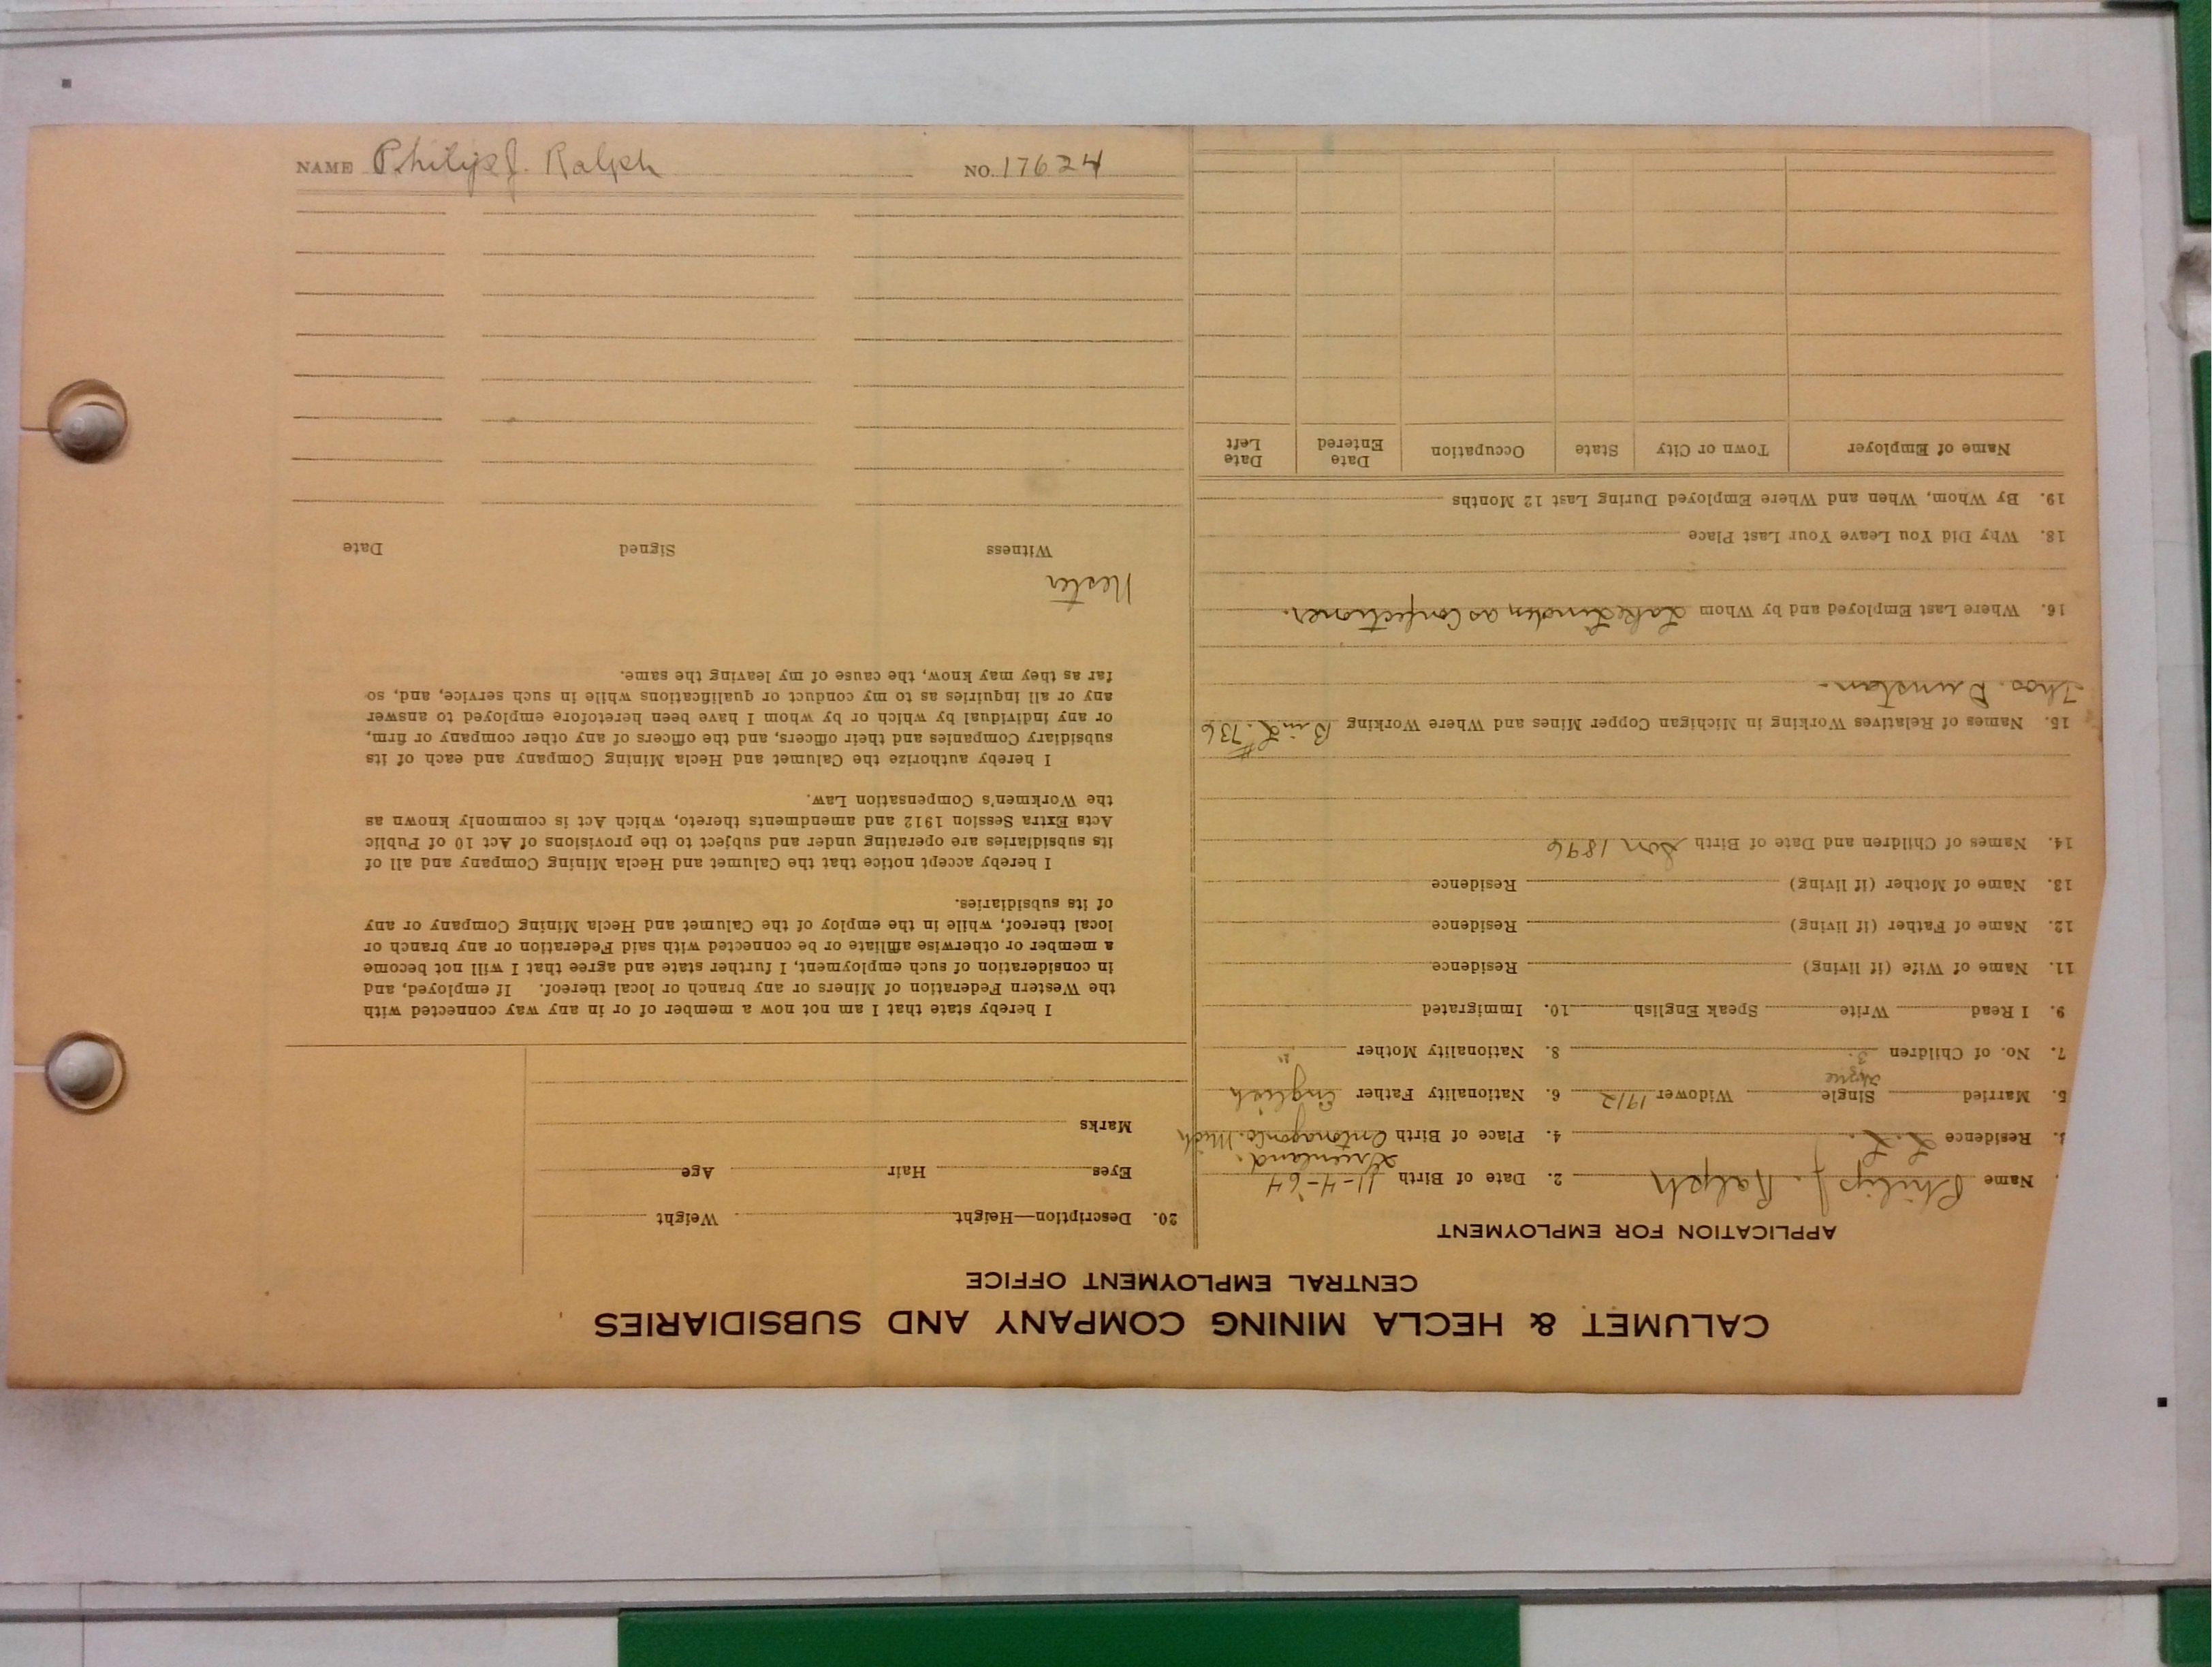 NAME Philip J. Ralph NO. 17624
CALUMET & HECLA MINING COMPANY AND SUBSIDIARIES
CENTRAL EMPLOYMENT OFFICE
APPLICATION FOR EMPLOYMENT
Name Philip J. Ralph 2. Date of Birth 11-4-64
Greenland.
Residence L. L. 4. Place of Birth Ontonagon Co. Mich
5. Married Single Widower 1912 6. Nationality Father English
7. No. of Children 3. 8. Nationality Mother "
9. I Read Write Speak English 10. Immigrated
11. Name of Wife (if living) Residence
12. Name of Father (if living) Residence
13. Name of Mother (if living) Residence
14. Names of Children and Date of Birth Son 1896
15. Names of Relatives Working in Michigan Copper Mines and Where Working #736
Thos. Dunstan.
16. Where Last Employed and by Whom Lake Linden as Confectioner.
18. Why Did You Leave Your Last Place
19. By Whom, When and Where Employed During Last 12 Months
Name of Employer Town or City State Occupation Date Entered Date Left
20. Description—Height Weight
Eyes Hair Age
Marks
I hereby state that I am not now a member of or in any way connected with
the Western Federation of Miners or any branch or local thereof. If employed, and
in consideration of such employment, I further state and agree that I will not become
a member or otherwise affiliate or be connected with said Federation or any branch or
local thereof, while in the employ of the Calumet and Hecla Mining Company or any
of its subsidiaries.
I hereby accept notice that the Calumet and Hecla Mining Company and all of
its subsidiaries are operating under and subject to the provisions of Act 10 of Public
Acts Extra Session 1912 and amendments thereto, which Act is commonly known as
the Workmen's Compensation Law.
I hereby authorize the Calumet and Hecla Mining Company and each of its
subsidiary Companies and their officers, and the officers of any other company or firm,
or any individual by which or by whom I have been heretofore employed to answer
any or all inquiries as to my conduct or qualifications while in such service, and, so
far as they may know, the cause of my leaving the same.
Nester
Witness Signed Date